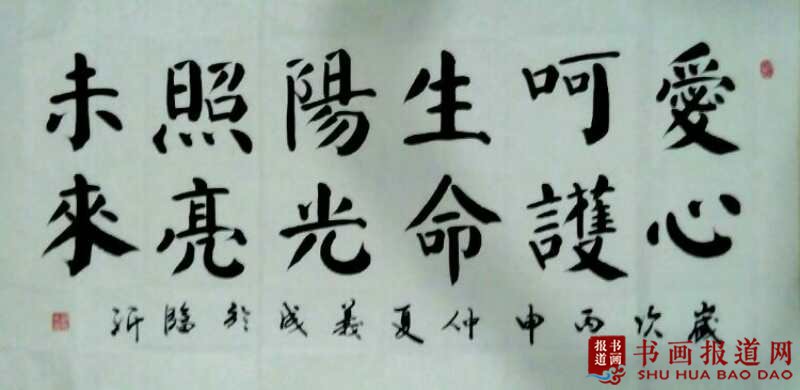 愛心
呵護
生命
陽光
照亮
未來
歲次丙申仲夏義成於臨沂
书画
报道
书画报道网
SHU HUA BAO DAO